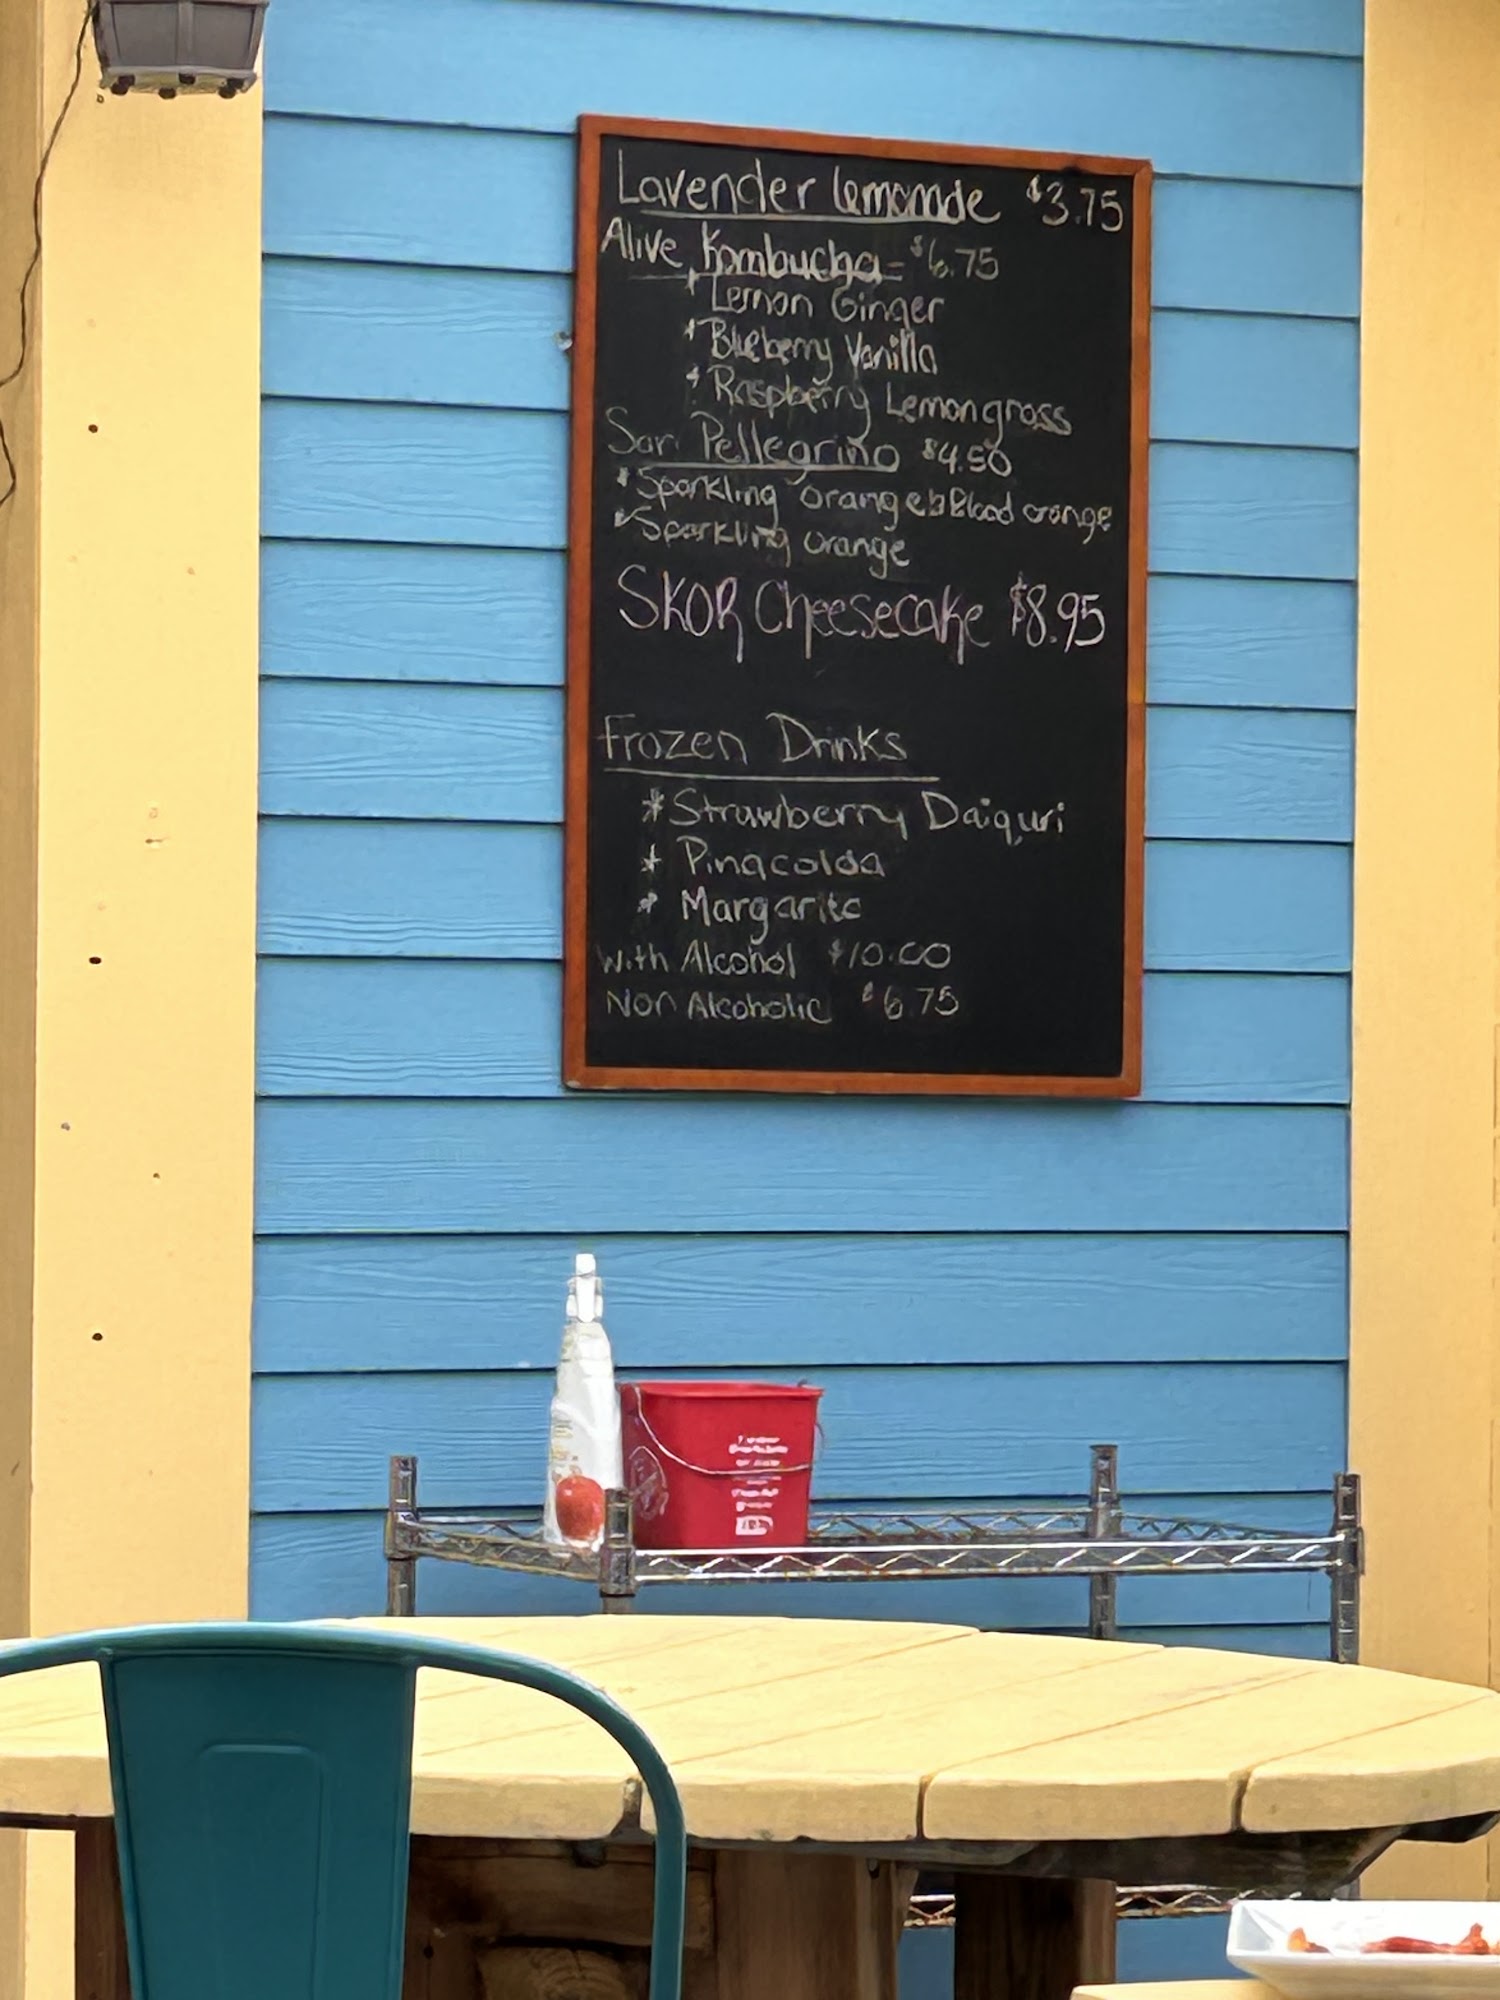 Lavender lemonade $3.75
Alive Kombucha - $6.75
* Lemon Ginger
* Blueberry Vanilla
* Raspberry Lemongrass
San Pellegrino $4.50
* Sparkling orange & Blood orange
* Sparkling orange
SKOR Cheesecake $8.95
Frozen Drinks
* Strawberry Daiquri
* Pinacolda
* Margarita
With Alcohol $10.00
Non Alcoholic $6.75